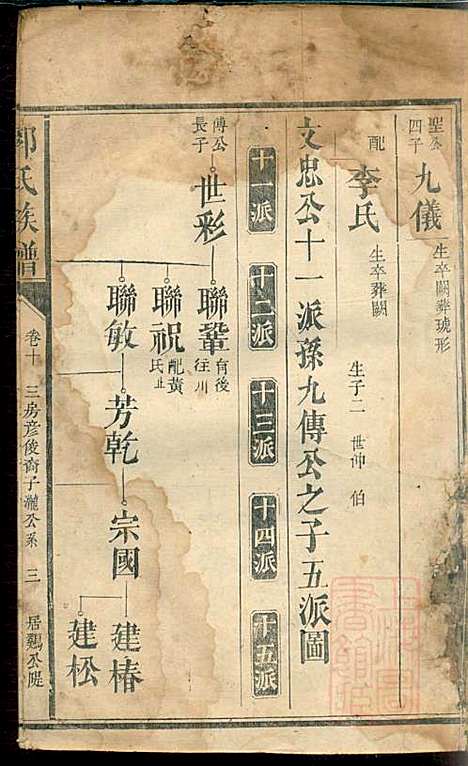 聖公四子
九儀
生卒闕葬琥形
配
李氏
生卒葬闕
生子二 世仰 伯
文忠公十一派孫九傳公之子五派圖
十一派 十二派 十三派 十四派 十五派
傳公長子
世彩
聯鞏
育後往川
聯祝
配黃氏
聯敏
芳乾
宗國
建椿
建松
氏族譜
卷十 三房彦俊裔子瀧公系 三 居鷄公隄